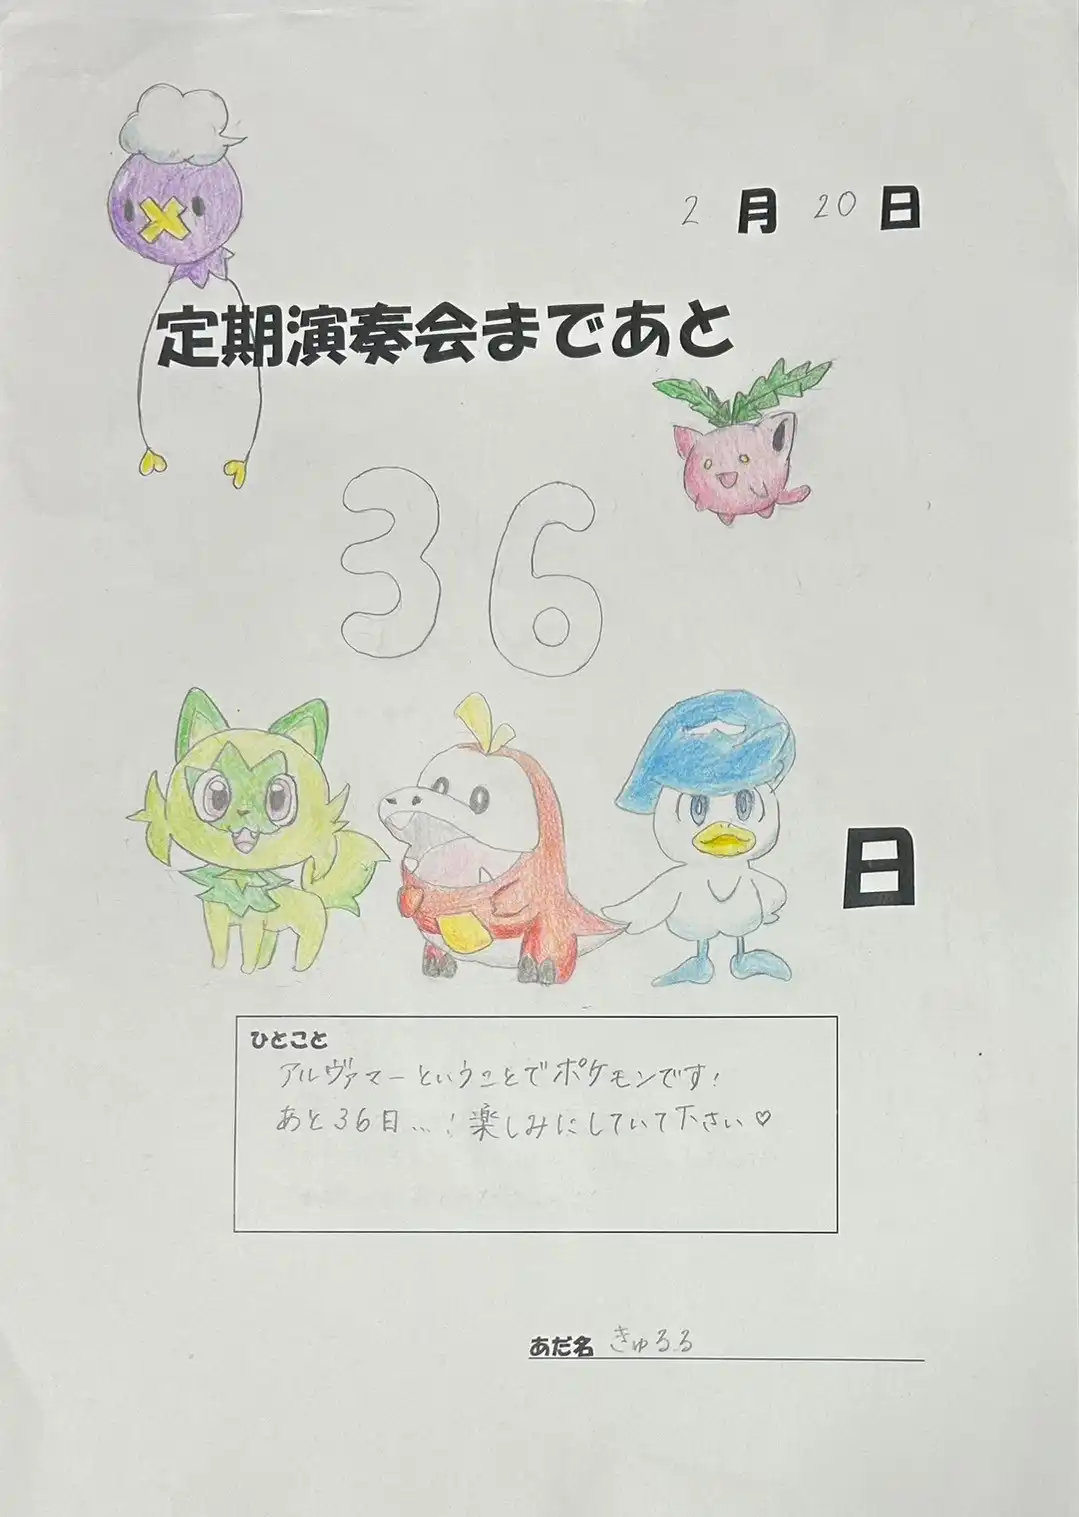 2月20日
定期演奏会まであと
36
日
ひとこと
アルヴァマーということでポケモンです!
あと36日…!楽しみにしていて下さい♡
あだ名 きゅるる